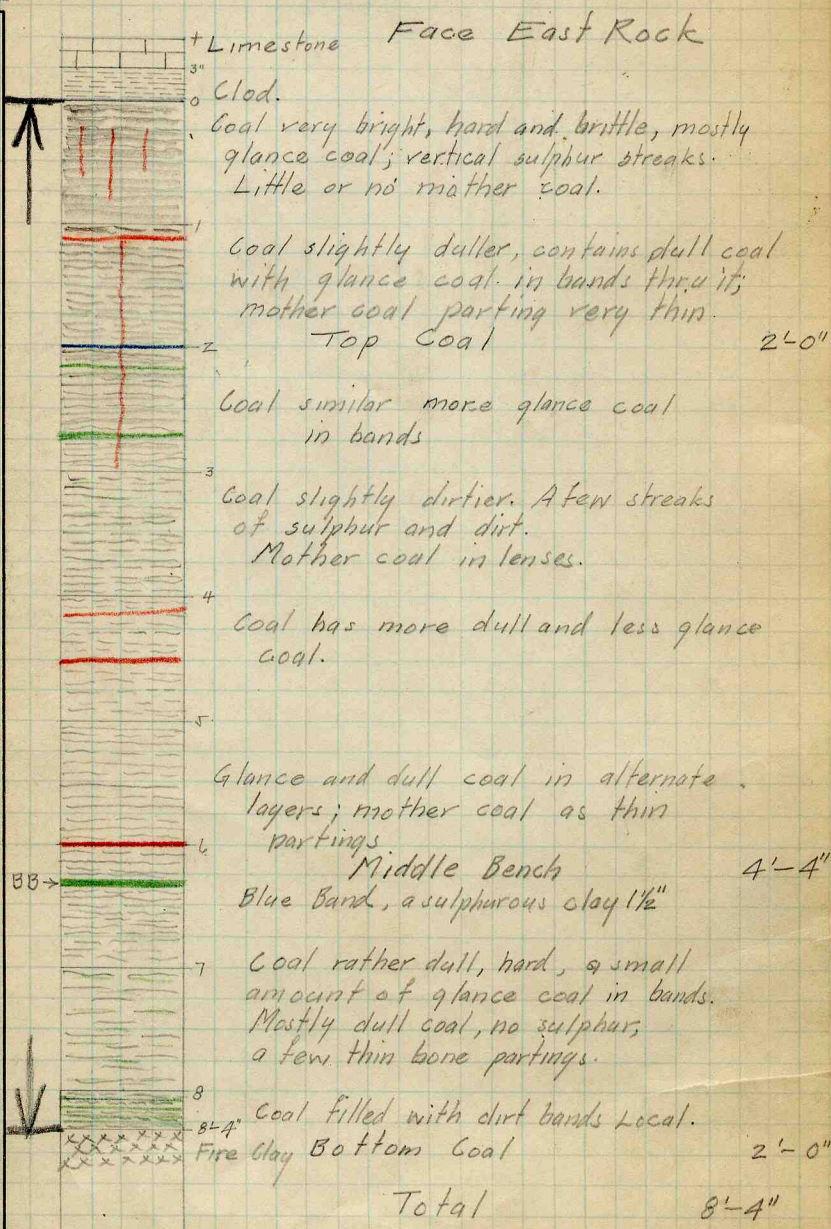 Face East Rock
+ Limestone
3"
Clod.
0
Coal very bright, hard and brittle, mostly
glance coal; vertical sulphur streaks.
Little or no mother coal.
1
Coal slightly duller, contains dull coal
with glance coal in bands thru it;
mother coal parting very thin.
2 Top Coal 2'-0"
Coal similar more glance coal
in bands
3
Coal slightly dirtier. A few streaks
of sulphur and dirt.
Mother coal in lenses.
4
Coal has more dull and less glance
coal.
5
Glance and dull coal in alternate
layers; mother coal as thin
partings
6
Middle Bench 4'-4"
BB→
Blue Band, a sulphurous clay 1½"
7
Coal rather dull, hard, a small
amount of glance coal in bands.
Mostly dull coal, no sulphur,
a few thin bone partings.
8
Coal filled with dirt bands Local.
8'-4"
Fire Clay Bottom Coal 2'-0"
Total 8'-4"